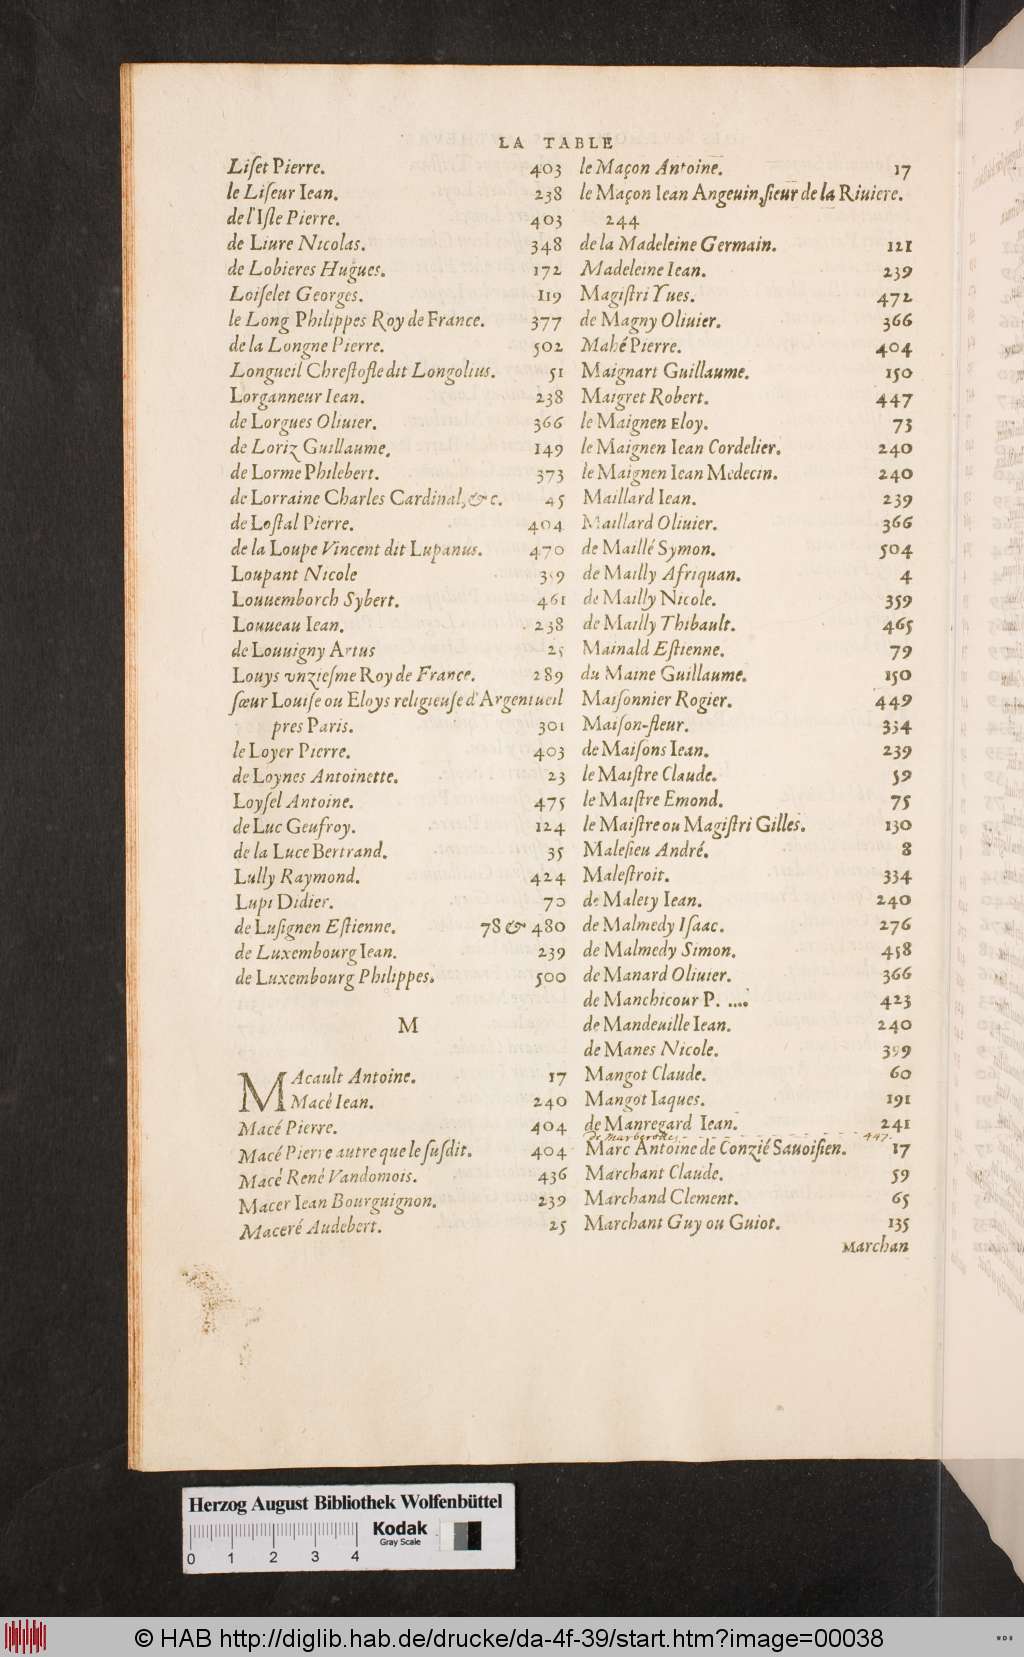 LA TABLE
Liſet Pierre. 403
le Liſeur Iean. 238
de l'Iſle Pierre. 403
de Liure Nicolas. 348
de Lobieres Hugues. 172
Loiſelet Georges. 119
le Long Philippes Roy de France. 377
de la Longne Pierre. 502
Longueil Chreſtofle dit Longolius. 51
Lorganneur Iean. 238
de Lorgues Oliuier. 366
de Loriz Guillaume. 149
de Lorme Philebert. 373
de Lorraine Charles Cardinal, &c. 45
de Loſtal Pierre. 404
de la Loupe Vincent dit Lupanus. 470
Loupant Nicole 359
Louuemborch Sybert. 461
Louueau Iean. 238
de Louuigny Artus 25
Louys vnzieſme Roy de France. 289
ſœur Louiſe ou Eloys religieuſe d'Argentueil
pres Paris. 301
le Loyer Pierre. 403
de Loynes Antoinette. 23
Loyſel Antoine. 475
de Luc Geufroy. 124
de la Luce Bertrand. 35
Lully Raymond. 424
Lupi Didier. 70
de Luſignen Eſtienne. 78 & 480
de Luxembourg Iean. 239
de Luxembourg Philippes. 500
M
MAcault Antoine. 17
Macé Iean. 240
Macé Pierre. 404
Macé Pierre autre que le ſuſdit. 404
Macé René Vandomois. 436
Macer Iean Bourguignon. 239
Maceré Audebert. 25
le Maçon Antoine. 17
le Maçon Iean Angeuin, ſieur de la Riuiere.
244
de la Madeleine Germain. 121
Madeleine Iean. 239
Magiſtri Yues. 472
de Magny Oliuier. 366
Mahé Pierre. 404
Maignart Guillaume. 150
Maigret Robert. 447
le Maignen Eloy. 73
le Maignen Iean Cordelier. 240
le Maignen Iean Medecin. 240
Maillard Iean. 239
Maillard Oliuier. 366
de Maillé Symon. 504
de Mailly Afriquan. 4
de Mailly Nicole. 359
de Mailly Thibault. 465
Mainald Eſtienne. 79
du Maine Guillaume. 150
Maiſonnier Rogier. 449
Maiſon-fleur. 334
de Maiſons Iean. 239
le Maiſtre Claude. 59
le Maiſtre Emond. 75
le Maiſtre ou Magiſtri Gilles. 130
Maleſieu André. 8
Maleſtroit. 334
de Malety Iean. 240
de Malmedy Iſaac. 276
de Malmedy Simon. 458
de Manard Oliuier. 366
de Manchicour P. .... 423
de Mandeuille Iean. 240
de Manes Nicole. 359
Mangot Claude. 60
Mangot Iaques. 191
de Manregard Iean. 241
de Marberodes 447.
Marc Antoine de Conzié Sauoiſien. 17
Marchant Claude. 59
Marchand Clement. 65
Marchant Guy ou Guiot. 135
Marchan
Herzog August Bibliothek Wolfenbüttel
0 1 2 3 4
Kodak
Gray Scale
© HAB http://diglib.hab.de/drucke/da-4f-39/start.htm?image=00038